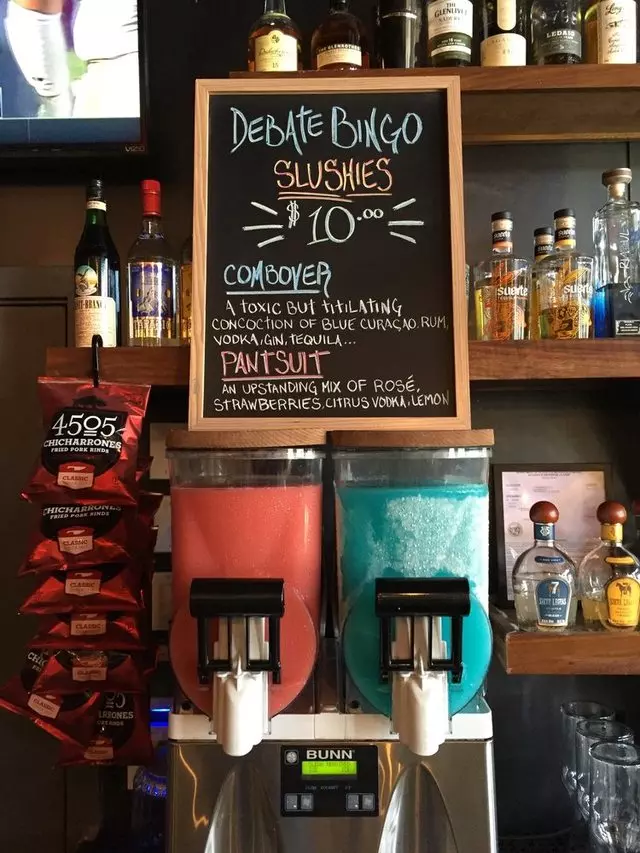 THE GLENLIVET
DEBATE BINGO
SLUSHIES
$10.00
COMBOVER
A TOXIC BUT TITILATING
CONCOCTION OF BLUE CURAÇAO, RUM,
VODKA, GIN, TEQUILA...
PANTSUIT
AN UPSTANDING MIX OF ROSÉ,
STRAWBERRIES, CITRUS VODKA, LEMON
VIZIO
suerte
suerte
4505
CHICHARRONES
FRIED PORK RINDS
CLASSIC
CHICHARRONES
FRIED PORK RINDS
CLASSIC
CLASSIC
CLASSIC
CLASSIC
CLASSIC
BUNN